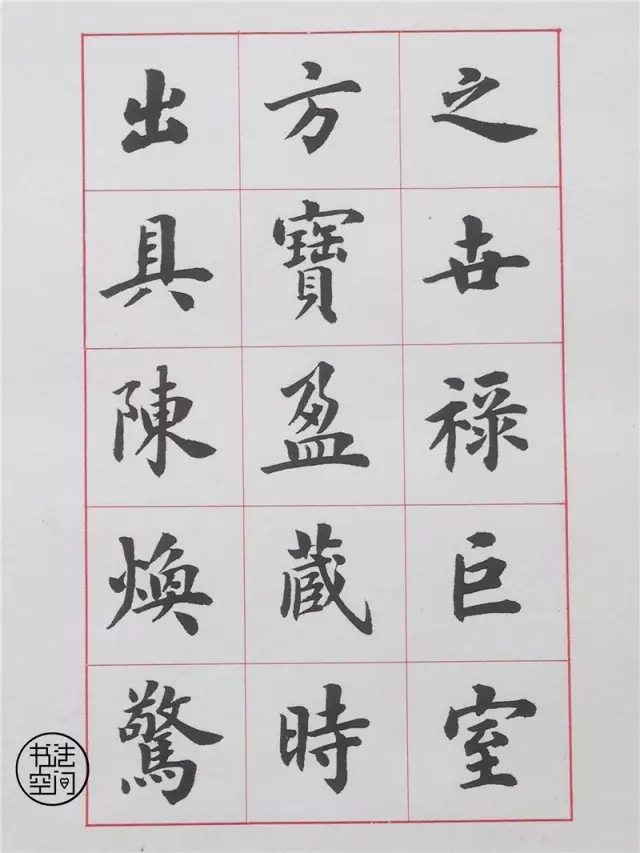 之世禄巨室
方寶盈蔵時
出具陳煥驚
书法
空间